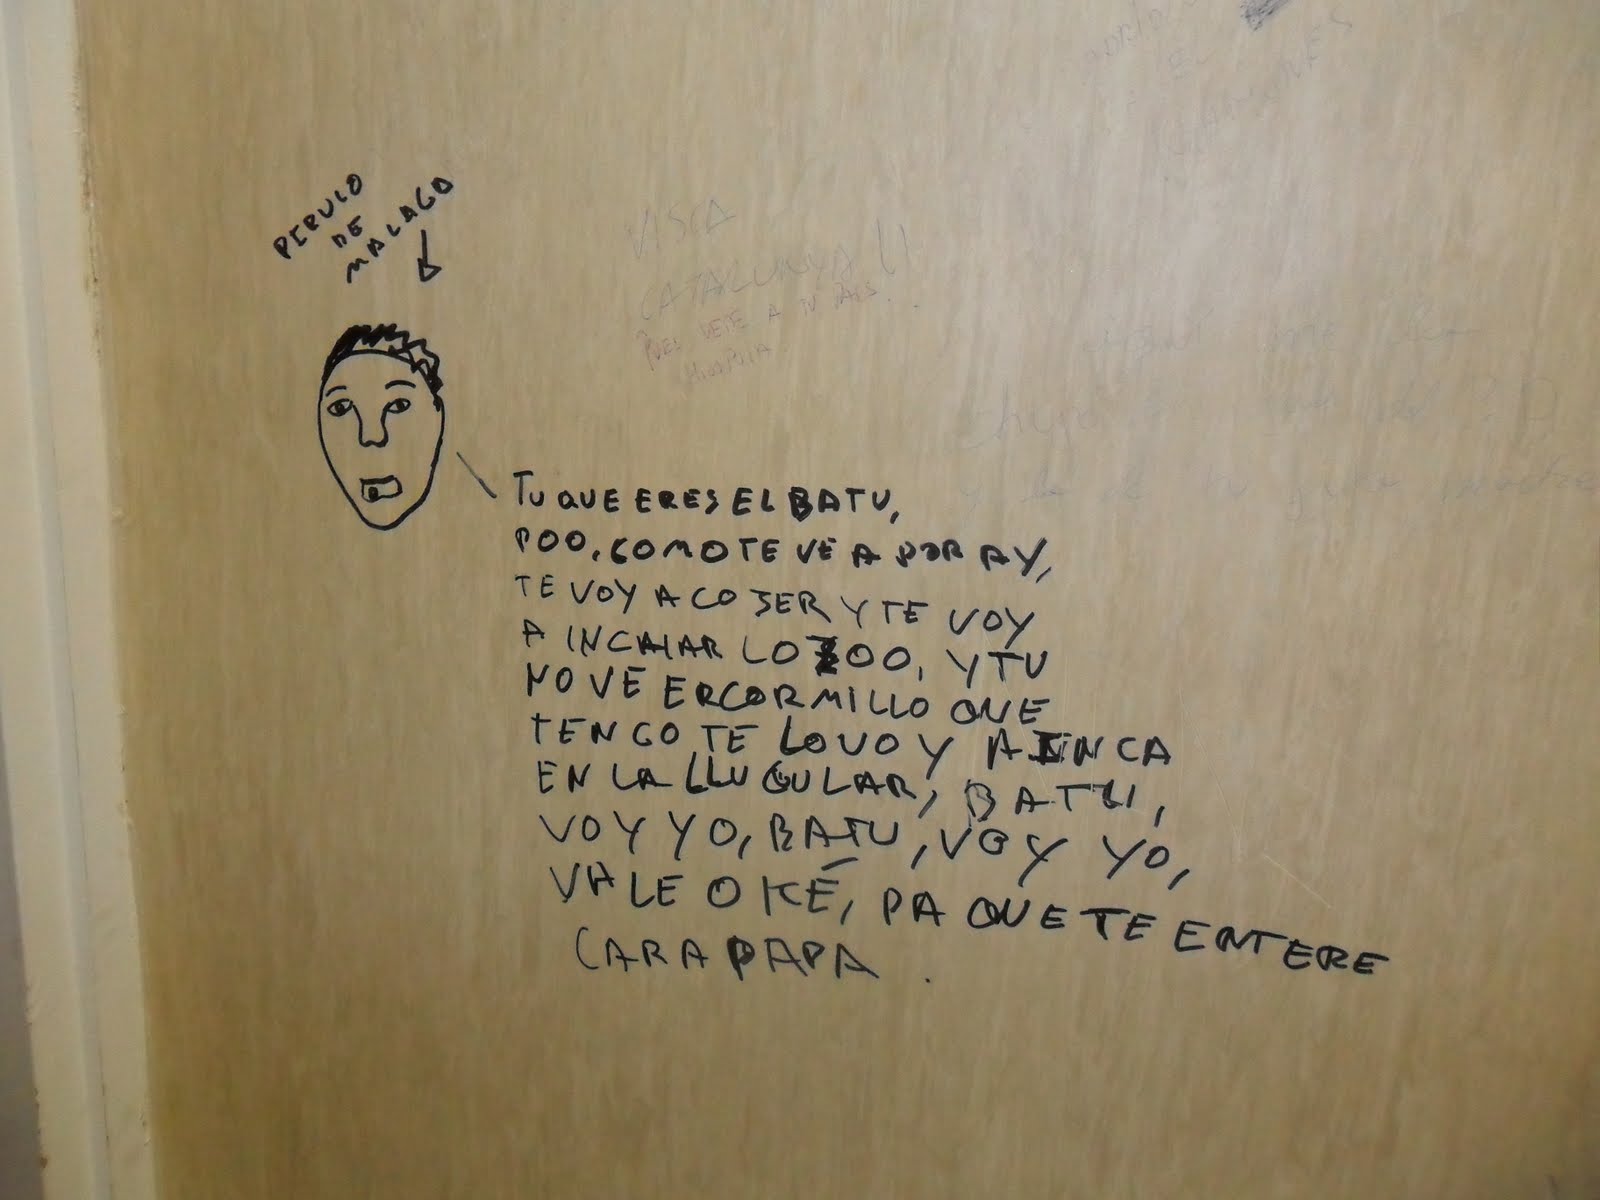 PIRULO
DE
MALAGA
VISCA
CATALUNYA !!
PUES VETE A TU PAIS...
TU QUE ERES EL BATU,
POO, COMO TE VE A POR AY,
TE VOY A COJER Y TE VOY
A INCAIAR LO ZOO, Y TU
NO VE ERCORMILLO QUE
TENGO TE LO VOY A INCA
EN LA LLUGULAR, BATU,
VOY YO, BATU, VOY YO,
VALE OKÉ, PA QUE TE ENTERE
CARAPAPA.